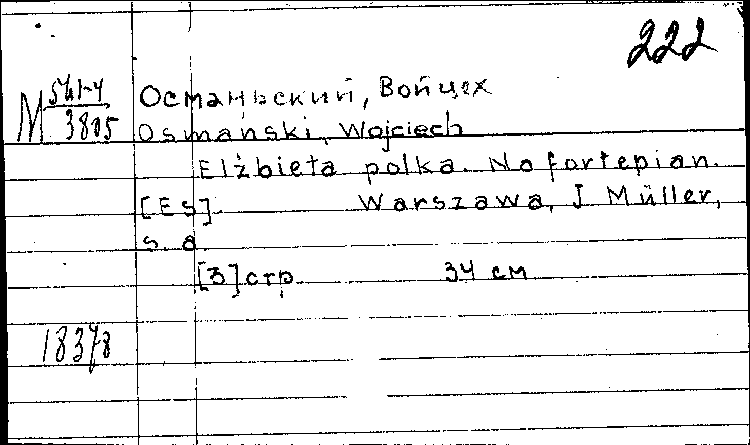 222
М 561-4
3805
Османьский, Войцех
Osmański, Wojciech
Elżbieta polka. Na fortepian.
[Es]. Warszawa, J Müller,
s. a.
[3] стр. 34 см
18378